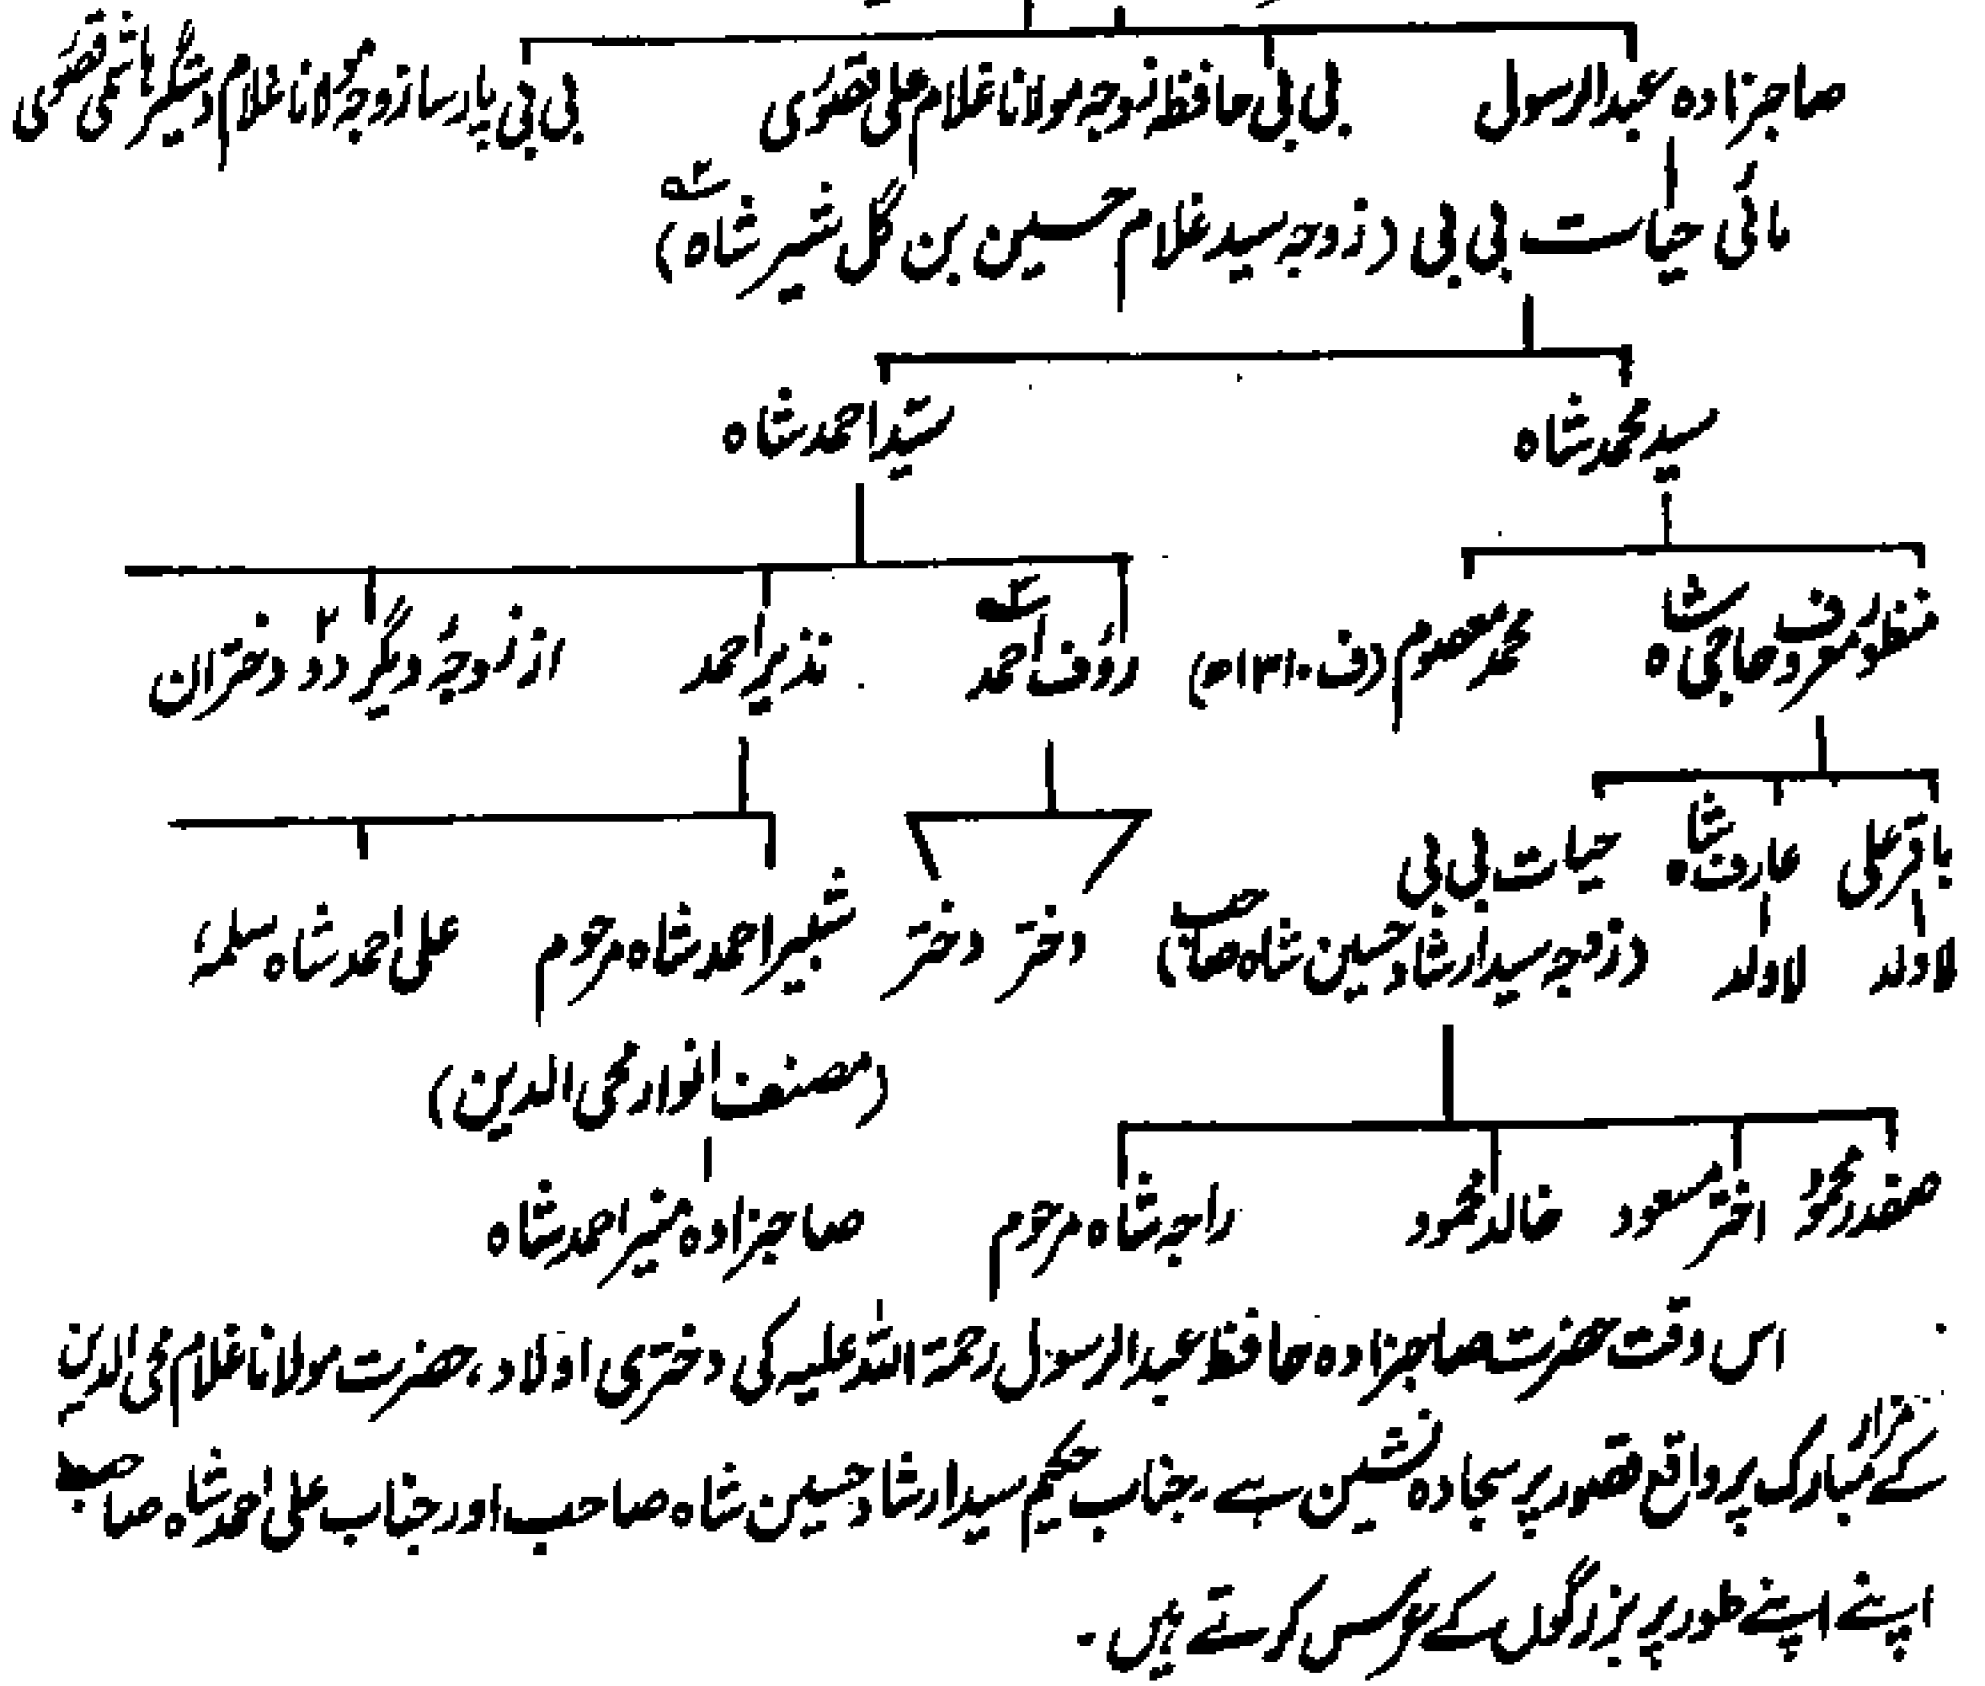 صاحبزادہ عبدالرسول بی بی حافظہ زوجہ مولانا غلام علی قصوری بی بی پارسا زوجہ مولانا غلام دستگیر ہاشمی قصوری
مائی حیات بی بی (زوجہ سید غلام حسین بن گل شیر شاہ)
سید محمد شاہ سیّد احمد شاہ
منظور معروف حاجی شاہ محمد معصوم (ف ۱۳۱۰ھ) رؤف احمد نذیر احمد از زوجۂ دیگر دو دختران
باقر علی عارف شاہ حیات بی بی
لاولد لاولد (زوجہ سید ارشاد حسین شاہ صاحب) دختر دختر شبیر احمد شاہ مرحوم علی احمد شاہ سلمہٗ
(مصنف انوار محی الدین)
صفدر محمود اختر مسعود خالد محمود راجہ شاہ مرحوم صاحبزادہ منیر احمد شاہ
اس وقت حضرت صاحبزادہ حافظ عبدالرسول رحمۃ اللہ علیہ کی دختری اولاد، حضرت مولانا غلام محی الدین
کے مزار مبارک پر واقع قصور پر سجادہ نشین ہے۔ جناب حکیم سید ارشاد حسین شاہ صاحب اور جناب علی احمد شاہ صاحب
اپنے اپنے طور پر بزرگوں کے عرس کرتے ہیں۔